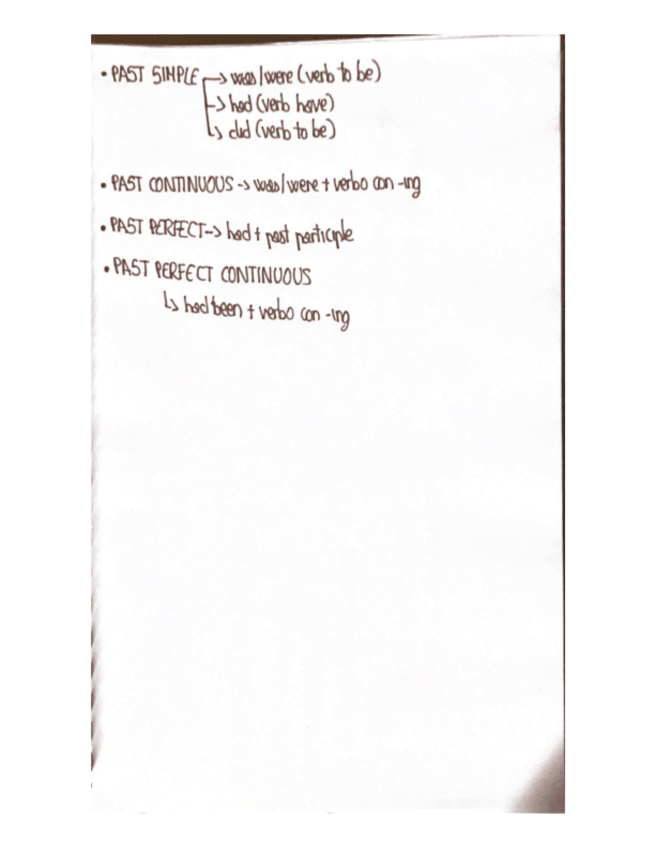 • PAST SIMPLE → was/were (verb to be)
→ had (verb have)
↳ did (verb to be)
• PAST CONTINUOUS -> was/were + verbo con -ing
• PAST PERFECT--> had + past participle
• PAST PERFECT CONTINUOUS
↳ had been + verbo con -ing